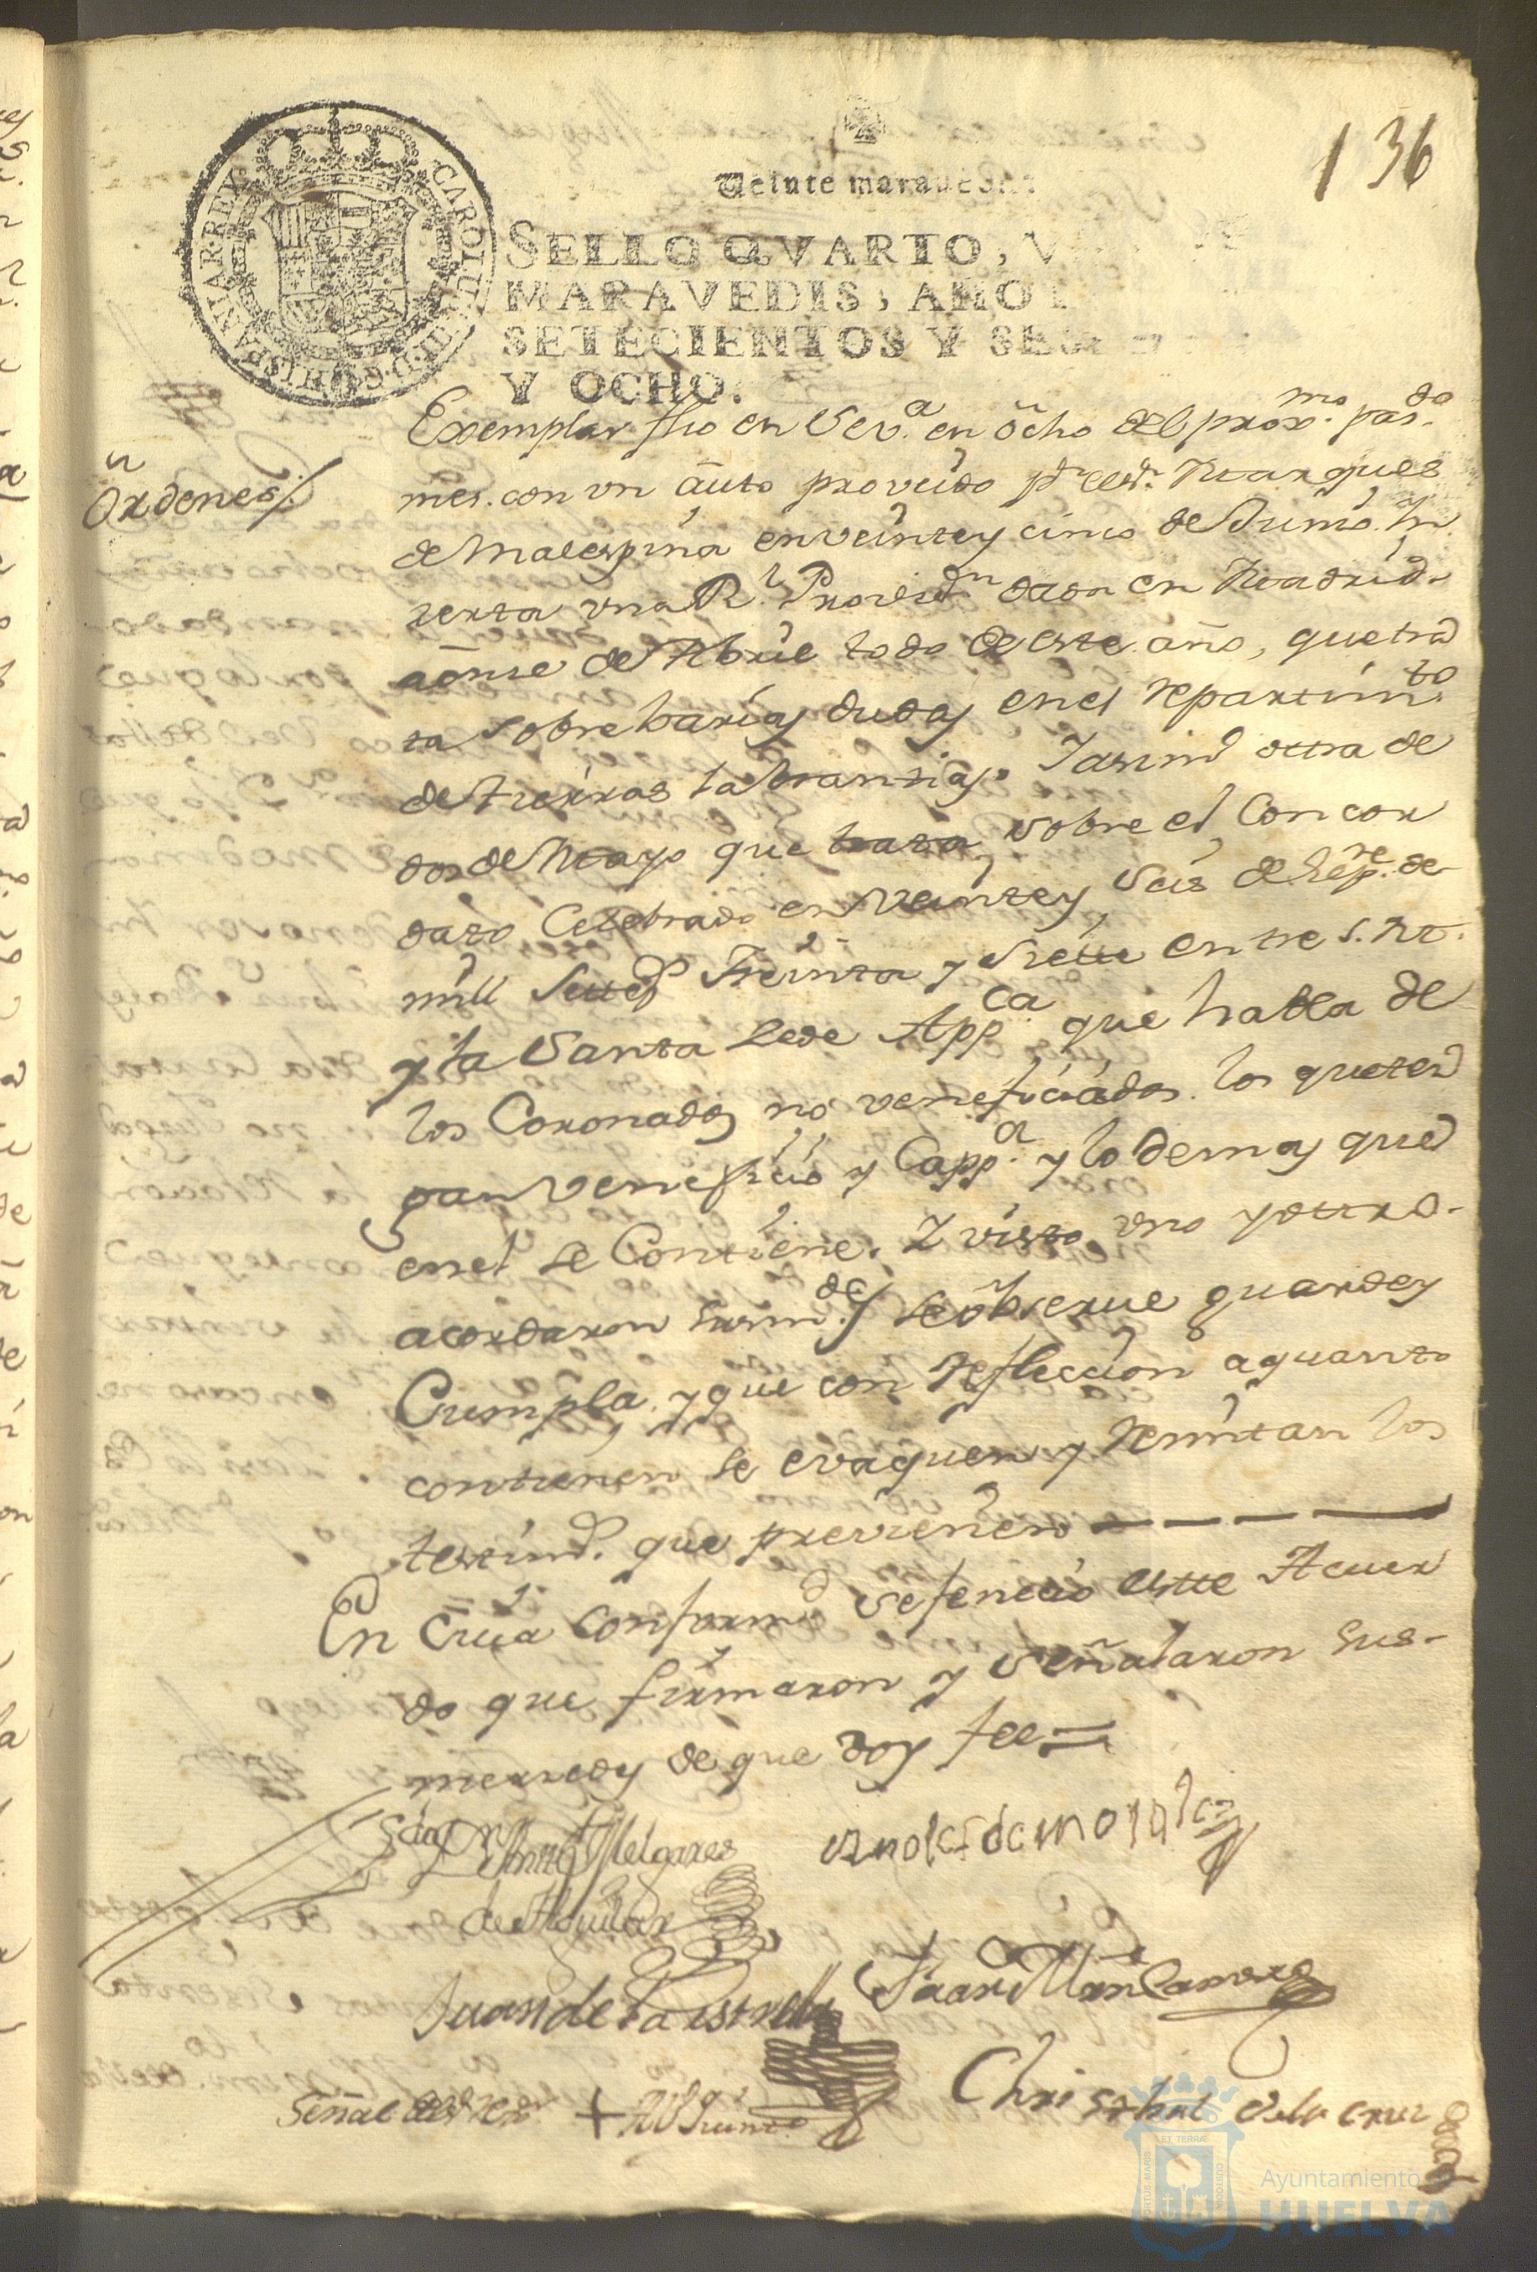 136
CAROLUS III D.G. HISPANIAR. REX
Veinte maravedis.
SELLO QVARTO, V
MARAVEDIS, AÑO
SETECIENTOS Y SES
Y OCHO.
Ordenes
Exemplar fho en Sev.ª en ocho del prox.mo pas.do
mes. con vn auto proveido p.r el S.r Marques
de Malespina en veintey cinco de Junio. Yn
serta vna R.l Provis.n dada en Madrid
aonse de Abril todo de este año, que tra
ta sobre barias dudas en el repartim.to
de tierras labrantias. Iasimd ottra de
dos de Mayo que trata sobre el Concor
dato Celebrado en Veintey Seis de Sep.re de
mill Settes Treinta y Siette entre S. M.
y la Santa Sede App.ca que habla de
los Coronados no veneficiados. los que ten
gan Veneficio y Capp.a y lo demas que
en el se Contiene. I visto vno yottro.
acordaron sus m.des se observe guardey
Cumpla. y que con reflecion aquanto
contienen se evaquen y remitan los
testim.s que previenen
En cuia conform.d se fenecio este Acuer
do que firmaron y señalaron sus
mercedes de que doy fee
Melgarejo
de Aguilar
Juan de la
Christobal dela cruz
Señal del
Ayuntamiento de
HUELVA